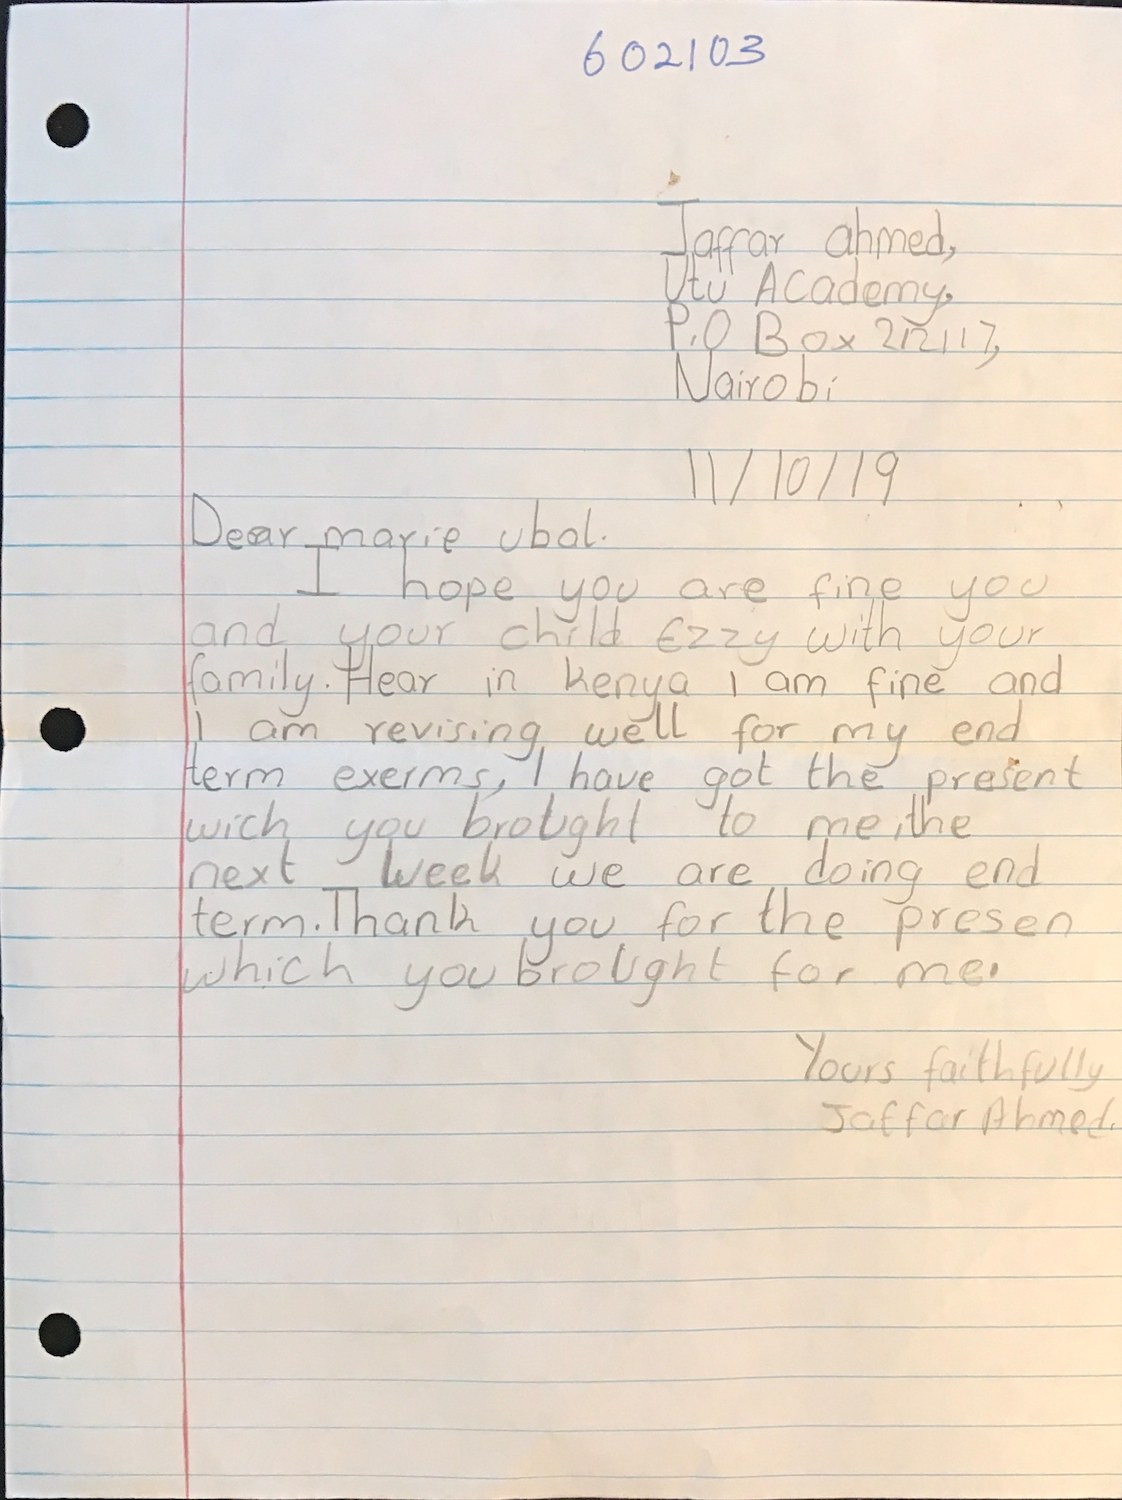 602103
Jaffar ahmed,
Utu Academy,
P.O Box 212117,
Nairobi
11/10/19
Dear marie ubal.
I hope you are fine you
and your child Ezzy with your
family. Hear in kenya I am fine and
I am revising well for my end
term exerms, I have got the present
wich you brought to me, the
next week we are doing end
term. Thank you for the presen
which you brought for me.
Yours faithfully
Jaffar Ahmed.